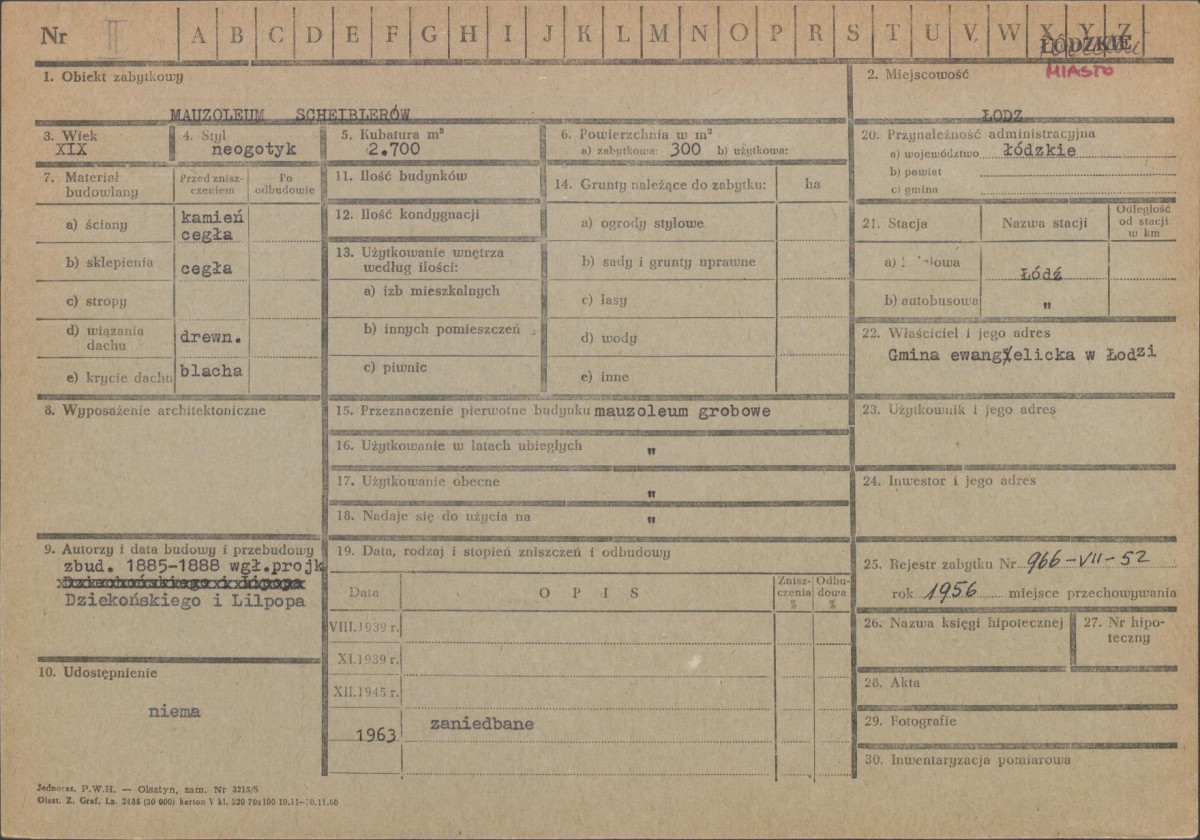 Nr II A B C D E F G H I J K L M N O P R S T U V W X Y Z
ŁÓDZKIE
MIASTO
1. Obiekt zabytkowy
MAUZOLEUM SCHEIBLERÓW
2. Miejscowość
ŁODZ
3. Wiek
XIX
4. Styl
neogotyk
5. Kubatura m³
2.700
6. Powierzchnia w m²
a) zabytkowa: 300 b) użytkowa:
20. Przynależność administracyjna
a) województwo łódzkie
b) powiat
c) gmina
7. Materiał
budowlany
Przed znisz-
czeniem
Po
odbudowie
a) ściany
kamień
cegła
b) sklepienia
cegła
c) stropy
d) wiązania
dachu
drewn.
e) krycie dachu
blacha
11. Ilość budynków
12. Ilość kondygnacji
13. Użytkowanie wnętrza
według ilości:
a) izb mieszkalnych
b) innych pomieszczeń
c) piwnic
14. Grunty należące do zabytku:
ha
a) ogrody stylowe
b) sady i grunty uprawne
c) lasy
d) wody
e) inne
21. Stacja
Nazwa stacji
Odległość
od stacji
w km
a)
Łódź
b) autobusowa "
22. Właściciel i jego adres
Gmina ewangelicka w Łodzi
8. Wyposażenie architektoniczne
15. Przeznaczenie pierwotne budynku mauzoleum grobowe
16. Użytkowanie w latach ubiegłych "
17. Użytkowanie obecne "
18. Nadaje się do użycia na "
23. Użytkownik i jego adres
24. Inwestor i jego adres
9. Autorzy i data budowy i przebudowy
zbud. 1885-1888 wgł.projk
Dziekońskiego i Lilpopa
Dziekońskiego i Lilpopa
10. Udostępnienie
niema
19. Data, rodzaj i stopień zniszczeń i odbudowy
Data
O P I S
Znisz-
czenia
%
Odbu-
dowa
%
VIII.1939 r.
XI.1939 r.
XII.1945 r.
1963 zaniedbane
25. Rejestr zabytku Nr 966-VII-52
rok 1956 miejsce przechowywania
26. Nazwa księgi hipotecznej
27. Nr hipo-
teczny
28. Akta
29. Fotografie
30. Inwentaryzacja pomiarowa
Jednocz. P.W.H. — Olsztyn, zam. Nr 3215/S
Olszt. Z. Graf. Lz. 2485 (30 000) karton V kl. 220 70x100 10.11— 0.11.60